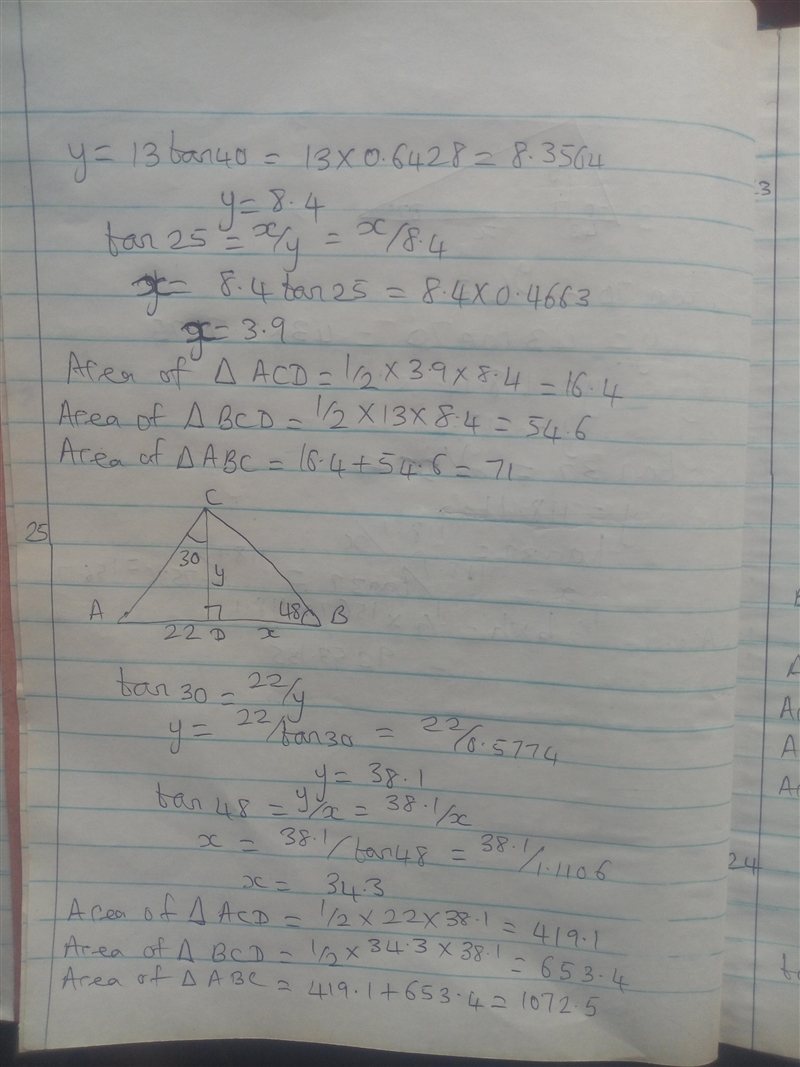 y = 13 tan 40 = 13 × 0.6428 = 8.3564
y = 8.4
tan 25 = x/y = x/8.4
x = 8.4 tan 25 = 8.4 × 0.4663
x = 3.9
Area of Δ ACD = 1/2 × 3.9 × 8.4 = 16.4
Area of Δ BCD = 1/2 × 13 × 8.4 = 54.6
Area of Δ ABC = 16.4 + 54.6 = 71
25
C
30
y
A
48
B
22
D
x
tan 30 = 22/y
y = 22/tan 30 = 22/0.5774
y = 38.1
tan 48 = y/x = 38.1/x
x = 38.1/tan 48 = 38.1/1.1106
x = 34.3
Area of Δ ACD = 1/2 × 22 × 38.1 = 419.1
Area of Δ BCD = 1/2 × 34.3 × 38.1 = 653.4
Area of Δ ABC = 419.1 + 653.4 = 1072.5
24